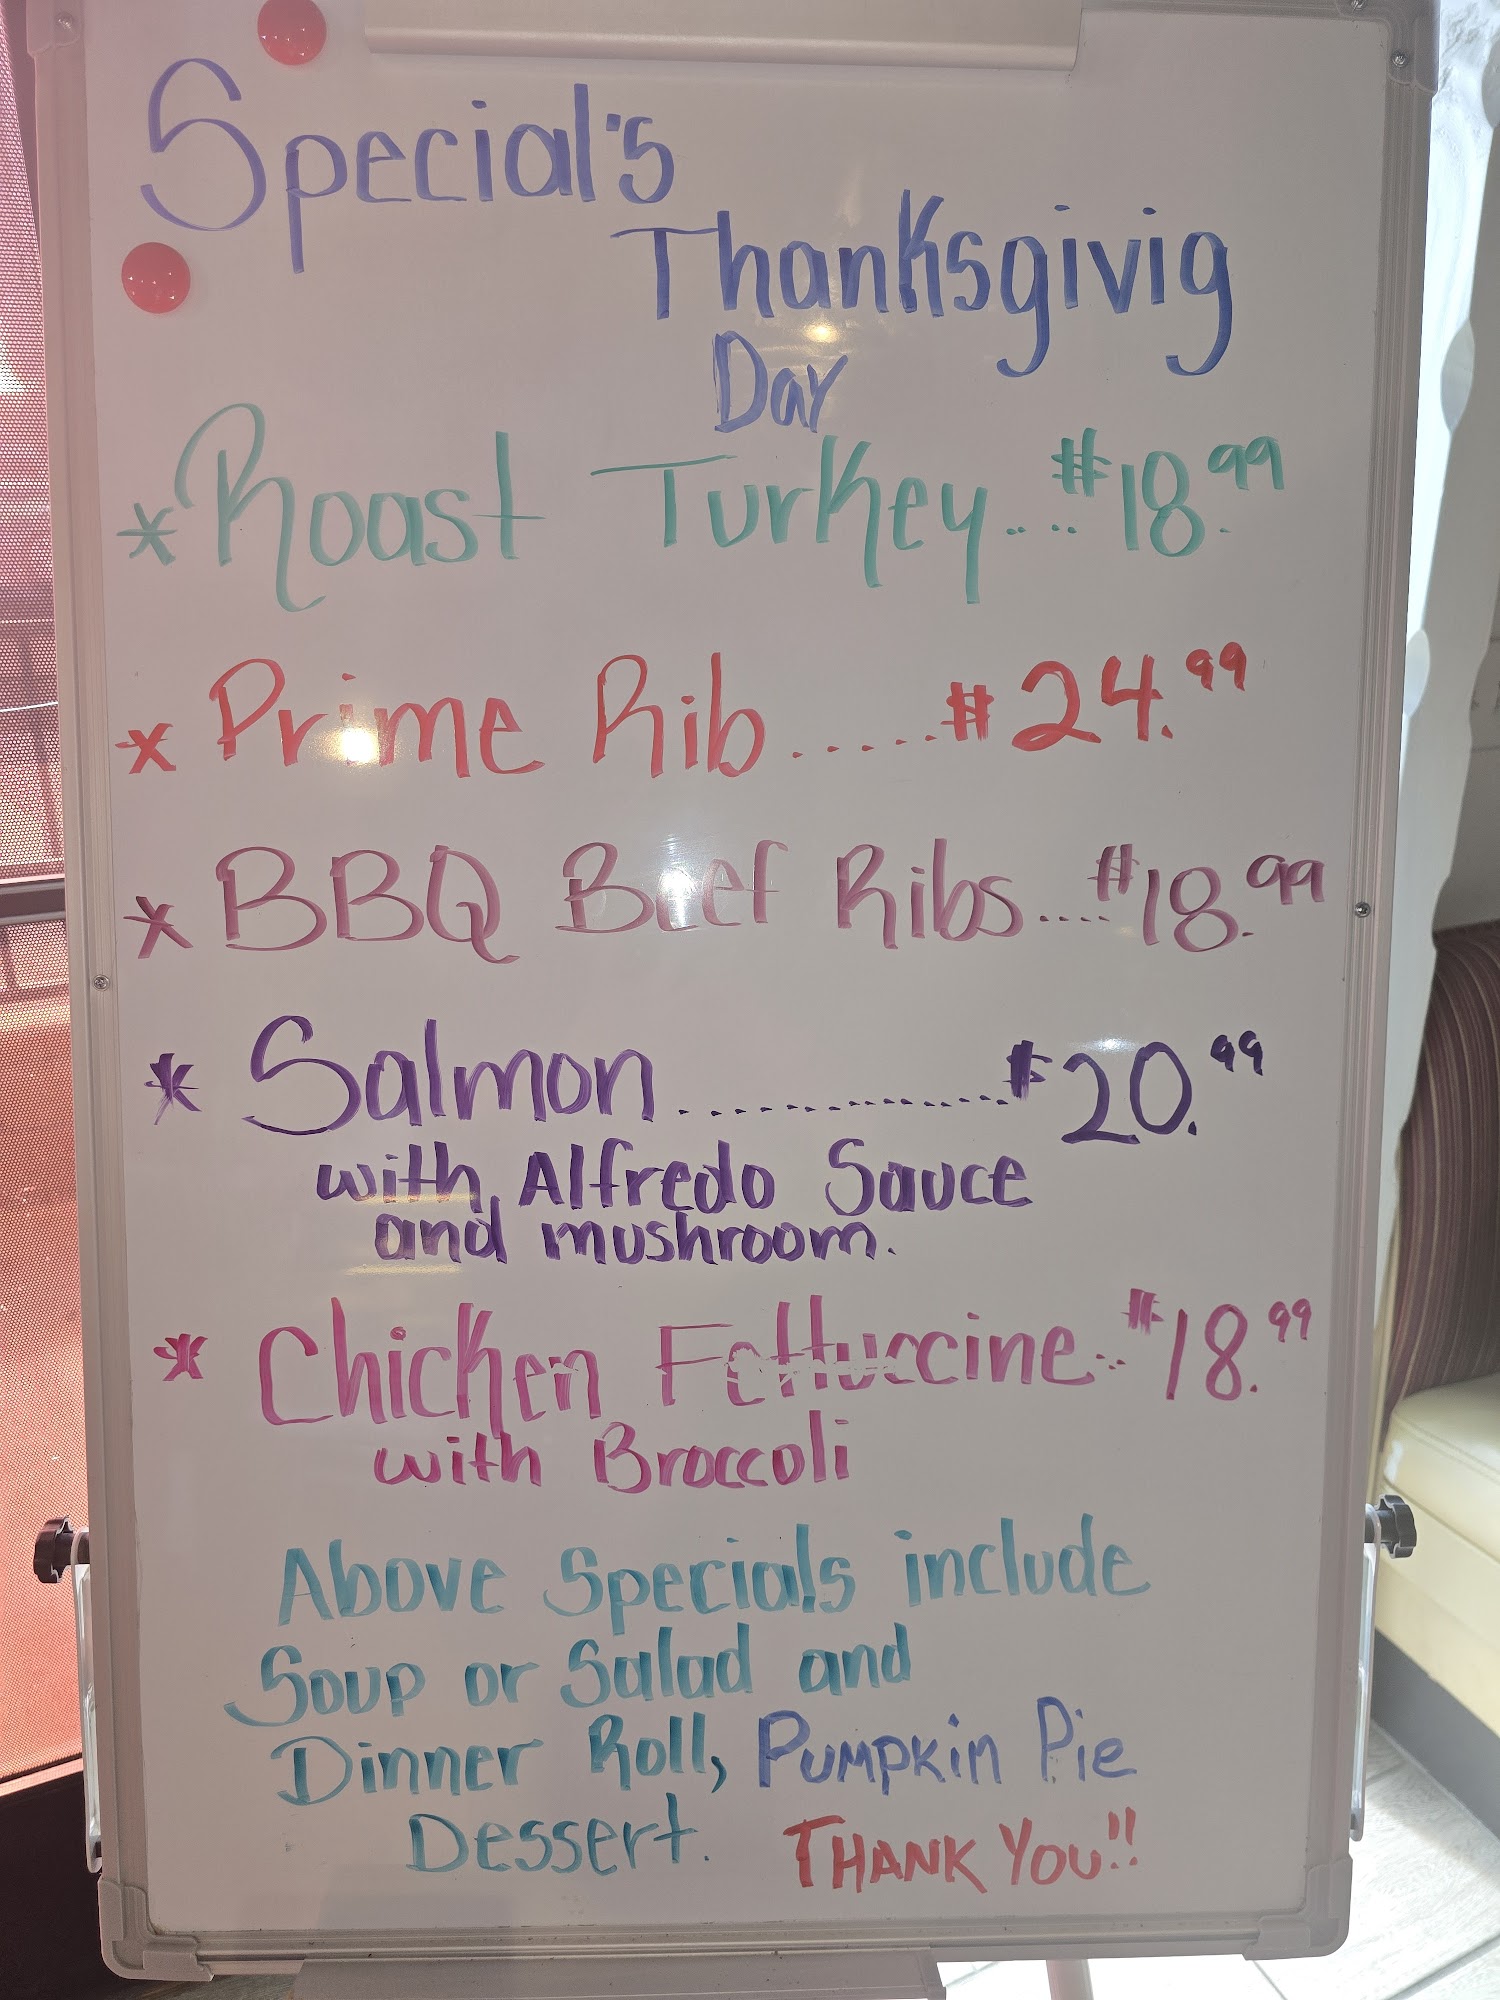 Special's
Thanksgivig
Day
* Roast Turkey.... $18.99
* Prime Rib...... $24.99
* BBQ Beef Ribs.... $18.99
* Salmon............... $20.99
with Alfredo Sauce
and mushroom.
* Chicken Fettuccine... $18.99
with Broccoli
Above Specials include
Soup or Salad and
Dinner Roll, Pumpkin Pie
Dessert. THANK YOU!!